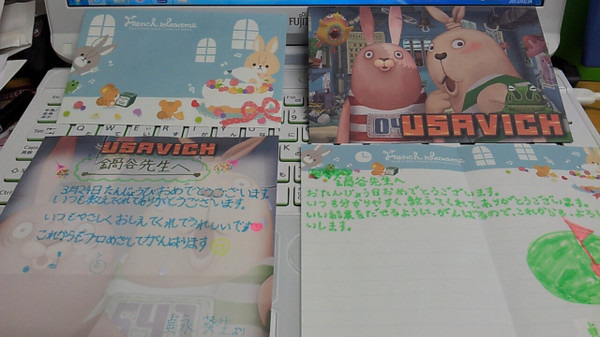 French blossome
04 USAVICH
USAVICH
鍋谷先生へ
3月24日たんじょうびおめでとうございます。
いつも教えてくれてありがとうございます。
いつもやさしくおしえてくれてうれしいです
これからもプロめざしてがんばります
04
より
French blossome
鍋谷先生へ
おたんじょう日おめでとうございます。
いつも分かりやすく、教えてくれて、ありがとうございます。
いい結果をだせるように、がんばるので、これからも、よろ
いします。